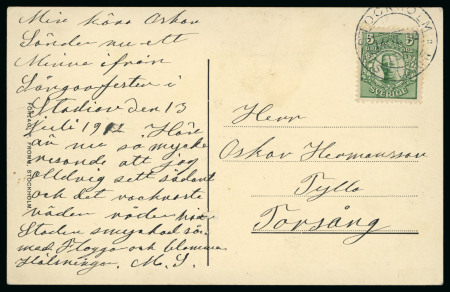 Min kära Oskar
Sänder nu ett
Minne ifrån
Sångarfesten i
Stadion den 13
Juli 1912. Här
är nu so mycke
resande att jag
alldrig sett sådant
och det vackraste
väder
Staden smyckad
med Flaggor och blommor
Hälsningar. M. S.
STOCKHOLM
5
SVERIGE
Herr
Oskar Hermansson
Tylla
Torsång